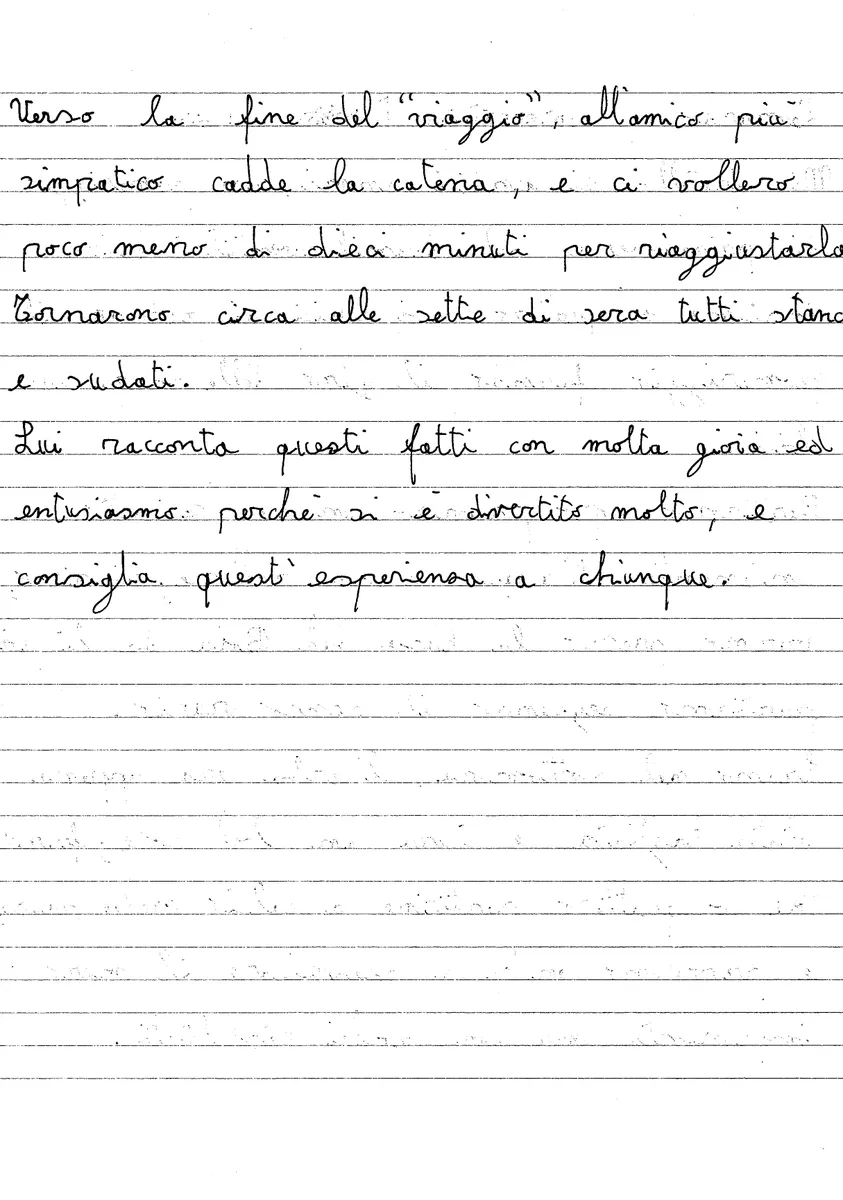 Verso la fine del "viaggio", all'amico più
simpatico cadde la catena, e ci vollero
poco meno di dieci minuti per riaggiustarla
Tornarono circa alle sette di sera tutti stanc
e sudati.
Lui racconta questi fatti con molta gioia ed
entusiasmo perché si è divertito molto, e
consiglia quest'esperienza a chiunque.